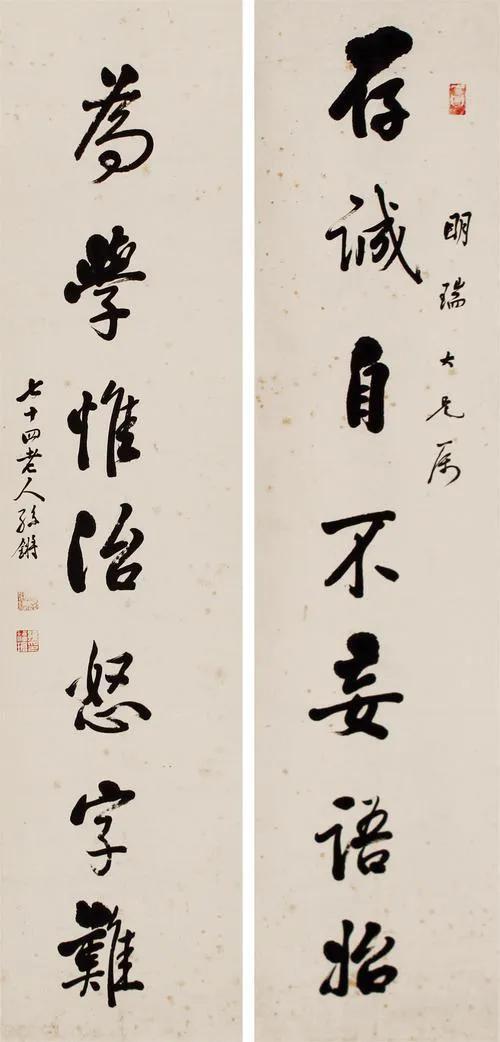 明瑞大兄属
存誠自不妄語始
為學惟治怒字難
七十四老人孫鏘